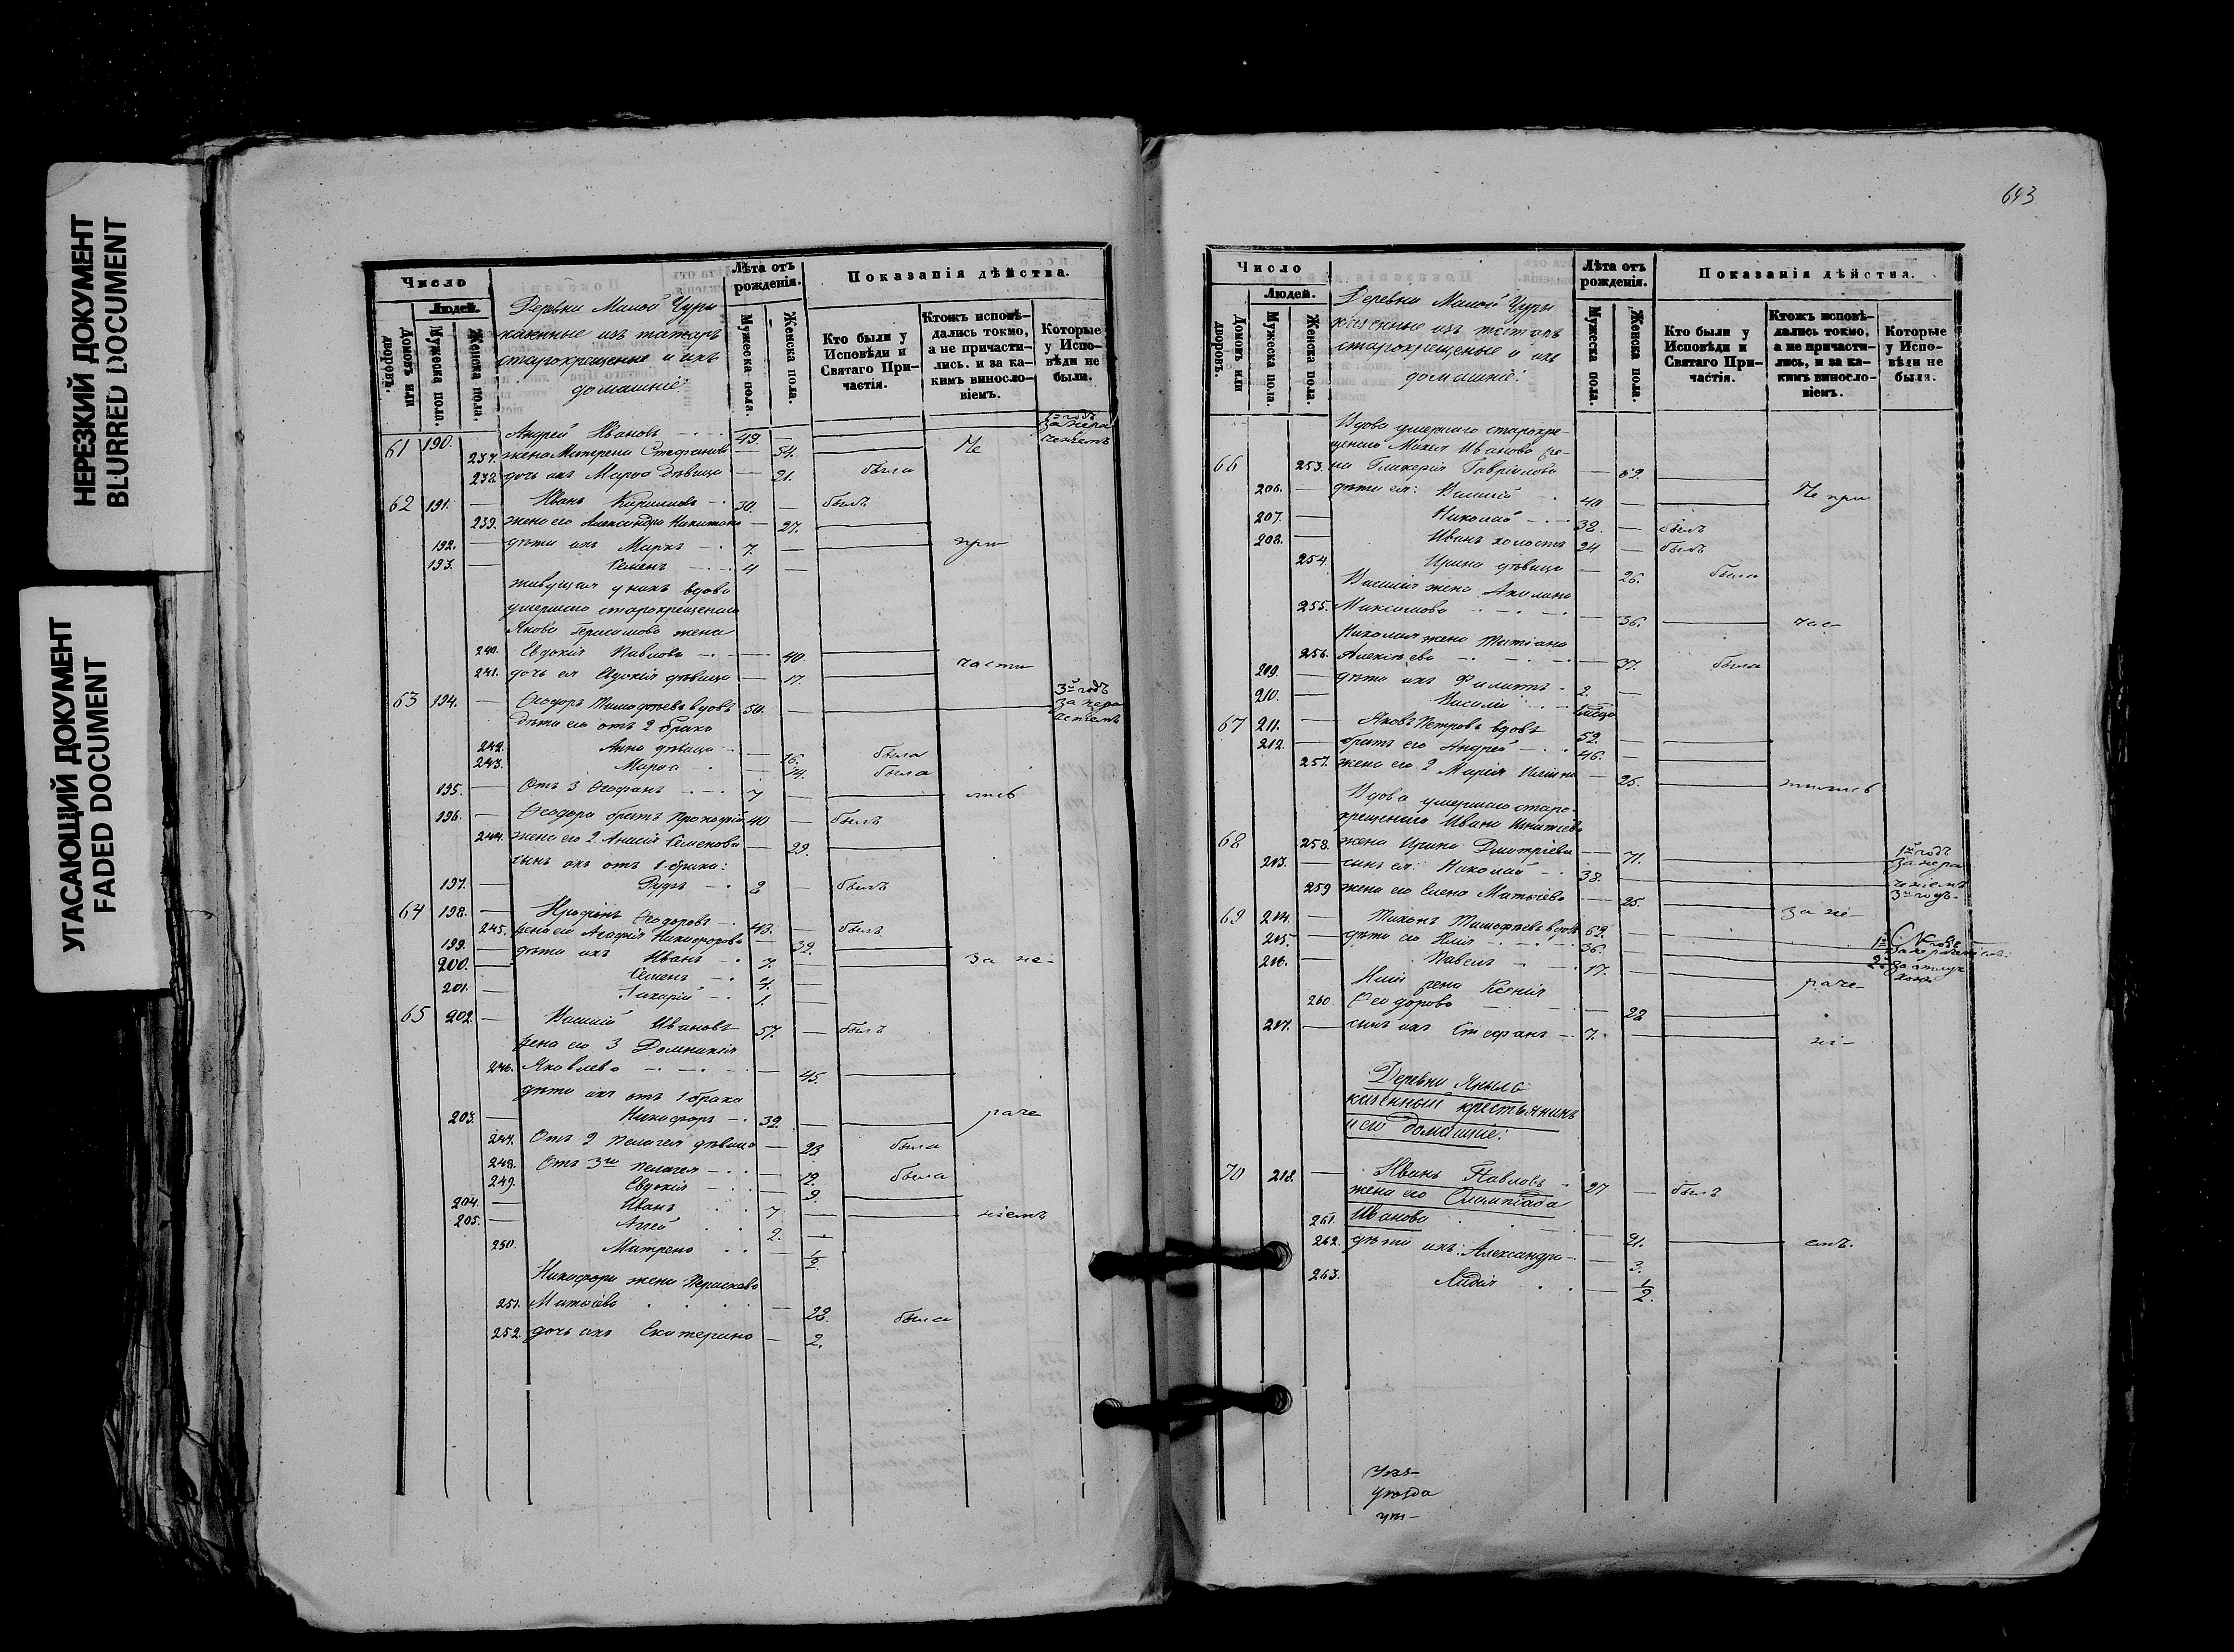 НЕРЕЗКИЙ ДОКУМЕНТ
BLURRED DOCUMENT
УГАСАЮЩИЙ ДОКУМЕНТ
FADED DOCUMENT
Число
Людей.
Домовъ или дворовъ.
Мужеска пола.
Женска пола.
Деревни Малой Чуры
казенные изъ татаръ
старокрещеные и ихъ
домашніе:
Лѣта отъ рожденія.
Мужеска пола.
Женска пола.
Показанія дѣйства.
Кто были у Исповѣди и Святаго Причастія.
Ктожъ исповѣдались токмо, а не причастились. и за какимъ винословіемъ.
Которые у Исповѣди не были.
61 190. Андрей Ивановъ 49. 1й годъ за нера
237. жена Матрена Стефанова 54. Не
238. дочь ихъ Марѳа дѣвица 21. была
62 191. Иванъ Кириловъ 30. былъ
239. жена его Александра Никитина 27.
192. дѣти ихъ Маркъ 7. при
193. Семенъ 4
живущая у нихъ вдова
умершаго старокрещенаго
Якова Герасимова жена
240. Евдокія Павлова 40. части
241. дочь ея Евдокія дѣвица 17.
63 194. Ѳеодоръ Тимоѳеевъ вдовъ 50. 3й годъ за нера
дѣти его отъ 2 брака
242. Анна дѣвица 16. была
243. Марѳа 14. была
195. Отъ 3 Ѳеофанъ 7 лись
196. Ѳеодора братъ Прокофій 40 былъ
244. жена его 2 Анисія Семенова 29.
сынъ ихъ отъ 1 брака:
197. 8 былъ
64 198. Ѳеодоровъ 43. былъ
245. жена его Агафія Никифорова 39.
199. дѣти ихъ Иванъ 7. за не-
200. Семенъ 4.
201. Захарій 1.
65 202. Василій Ивановъ 57. былъ
жена его 3 Домникія
246. Яковлева 45.
дѣти ихъ отъ 1 брака
203. Никифоръ 32. раче
247. Отъ 2 Пелагея дѣвица 23 была
248. Отъ 3й Пелагея 12. была
249. Евдокія 9.
204. Иванъ 7 ніемъ
205. Аггей 2.
250. Матрена 1/2.
Никифора жена Параскева
251. Матѳеева 22. была
252. дочь ихъ Екатерина 2.
643
Число
Людей.
Домовъ или дворовъ.
Мужеска пола.
Женска пола.
Деревни Малой Чуры
казенные изъ татаръ
старокрещеные и ихъ
домашніе:
Лѣта отъ рожденія.
Мужеска пола.
Женска пола.
Показанія дѣйства.
Кто были у Исповѣди и Святаго Причастія.
Ктожъ исповѣдались токмо, а не причастились, и за какимъ винословіемъ.
Которые у Исповѣди не были.
Вдова умершаго старокре-
щенаго Иванова же-
66 253. на Гликерія Гавріилова 62.
206. дѣти ея: Василій 40 Не при
207. Николай 32. былъ
208. Иванъ холостъ 24 былъ
254. Ирина дѣвица 26. была
Василія жена Акилина
255. Максимова 36. час
Николая жена Татіана
256. Алексѣева 37. была
209. дѣти ихъ Филиппъ 2.
210. Василій
67 211. Яковъ Петровъ вдовъ 52.
212. братъ его Андрей 46.
257. жена его 2 Марія Ильина 25. тились
Вдова умершаго старо-
крещенаго Ивана Игнатіева
68 258. жена Ирина Дмитріева 71. 1й годъ за нера
213. сынъ ея: Николай 38. ченіемъ
259 жена его Елена Матѳеева 25. 3й годъ. за не-
69 214. Тихонъ Тимоѳеевъ вдовъ 62.
215. дѣти его Илія 36.
216. Павелъ 17. 2й за отлуч
Иліи жена Ксенія раче-
260. Ѳеодорова 28
217. сынъ ихъ Стефанъ 7. ні-
Деревни Яныло
казенный крестьянинъ
и его домашніе:
70 218. Иванъ Павловъ 27 былъ
жена его Олимпіада
261. Иванова 21. емъ.
262. дѣти ихъ: Александра 3.
263. Лидія 1/2.